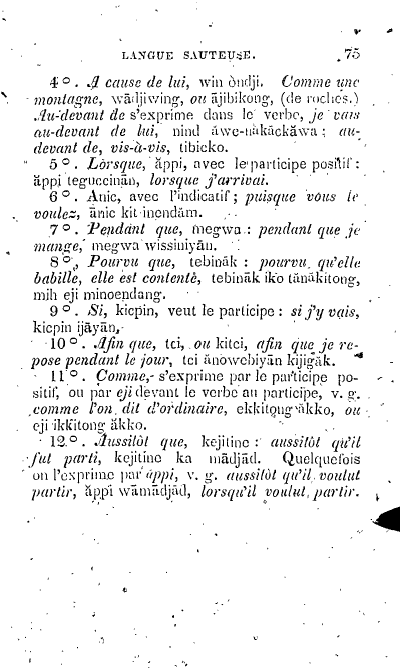 LANGUE SAUTEUSE. 75
4°. A cause de lui, win òndji. Comme une
montagne, wādjiwing, ou ājibikong, (de roches.)
Au-devant de s'exprime dans le verbe, je vais
au-devant de lui, nind āwe-nàkāckāwa; au-
devant de, vis-à-vis, tibicko.
5°. Lòrsque, ăppi, avec le participe positif:
ăppi teguccinān, lorsque j'arrivai.
6°. Anic, avec l'indicatif; puisque vous le
voulez, ānic kit inendām.
7°. Pendant que, megwa: pendant que je
mange, megwa wissiniyān.
8°. Pourvu que, tebinăk: pourvu qu'elle
babille, elle est contente, tebinăk iko tānākitong,
mih eji minoendang.
9°. Si, kicpin, veut le participe: si j'y vais,
kicpin ijāyān.
10°. Afin que, tci, ou kitci, afin que je re-
pose pendant le jour, tci ānowebiyān kijigăk.
11°. Comme, s'exprime par le participe po-
sitif, ou par eji devant le verbe au participe, v. g.
comme l'on dit d'ordinaire, ekkitong ăkko, ou
eji ikkitong ăkko.
12°. Aussitôt que, kejitinc: aussitôt qu'il
fut parti, kejitinc ka mādjād. Quelquefois
on l'exprime par ăppi, v. g. aussitôt qu'il voulut
partir, ăppi wāmādjād, lorsqu'il voulut partir.